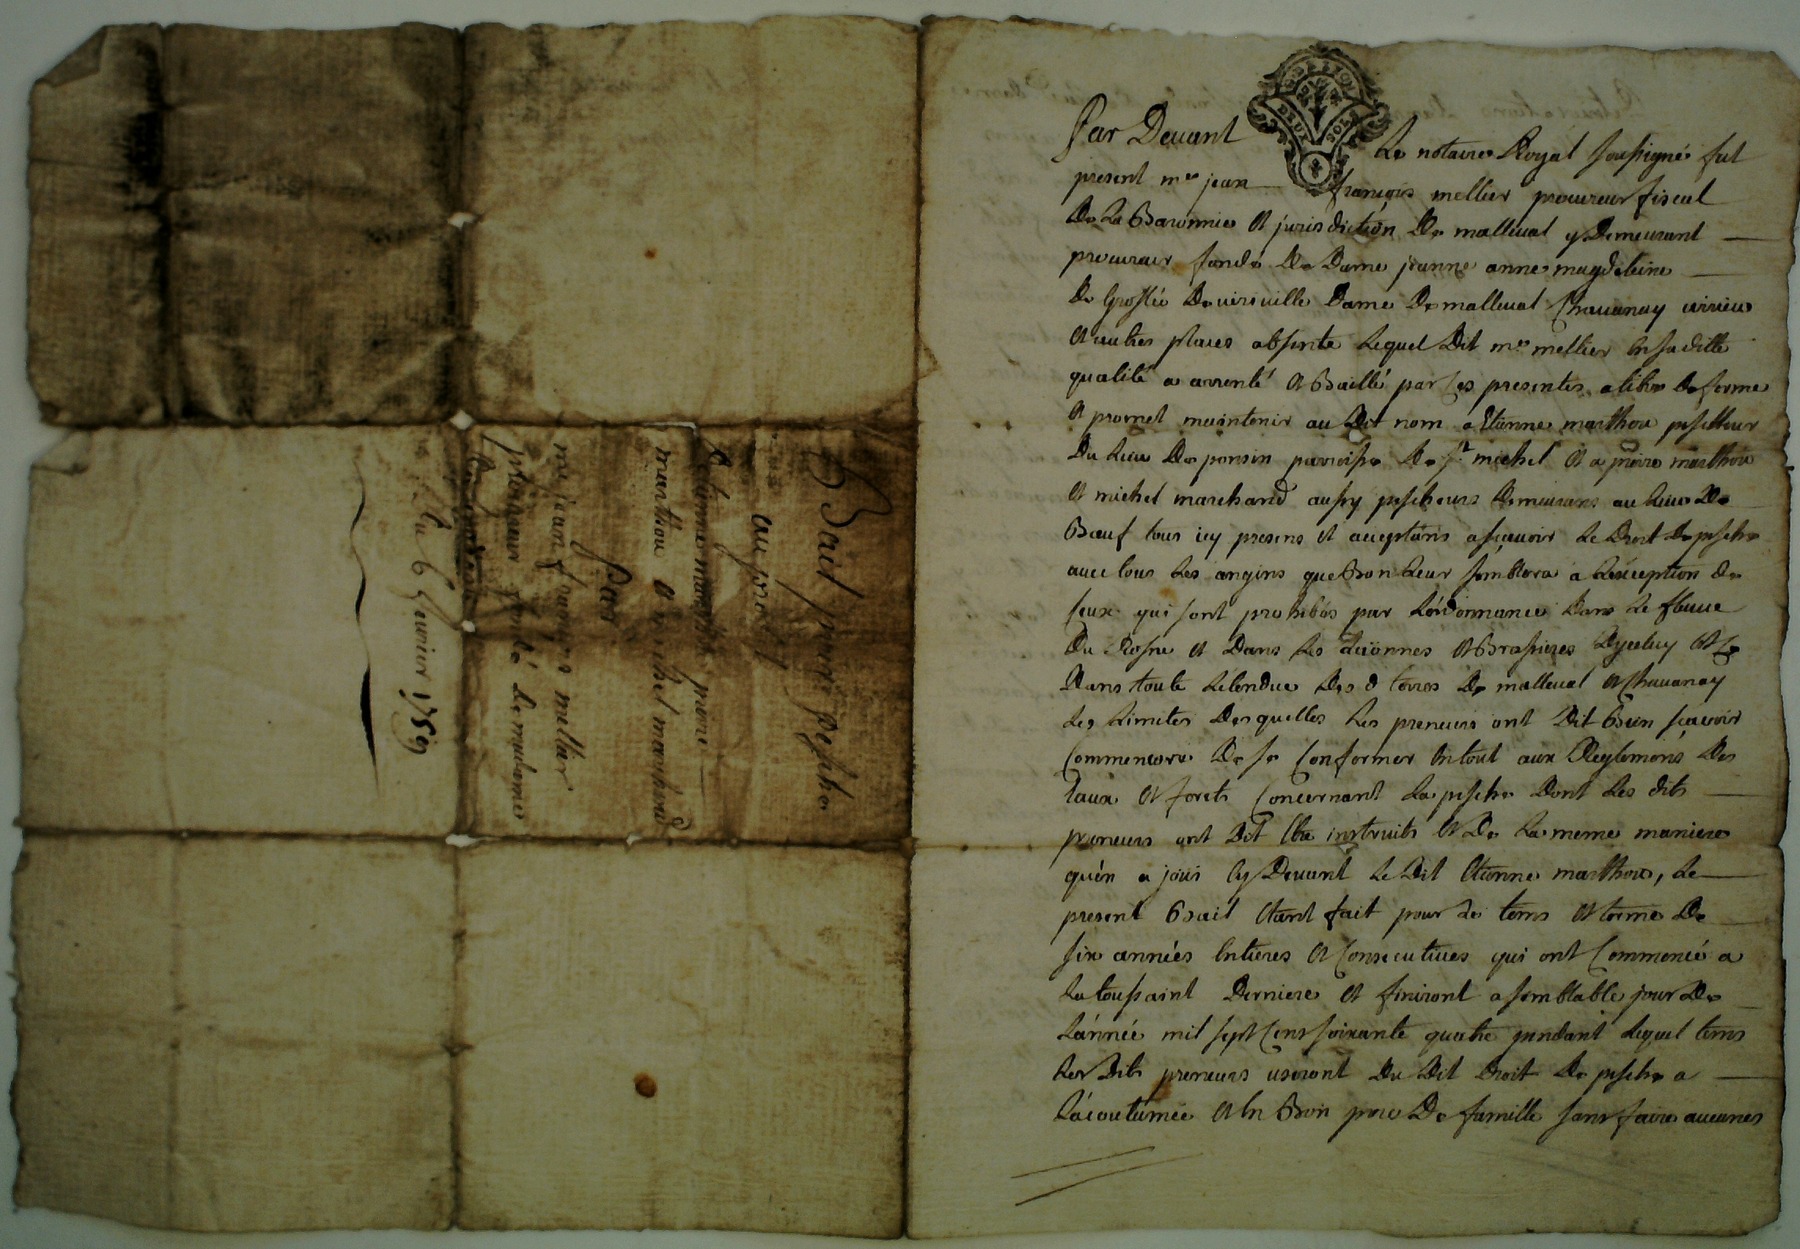 Bail pour pesche
au profit
Etienne marthou pierre
marthou et michel marchand
Par
me jean françois mellier
procureur fondé de madame
Du 6 fevrier 1759
DEUX SOLS
Par Devant Le notaire Royal soussigné fut
present me jean françois mellier procureur fiscal
De La Baronnie et jurisdiction De malleval y Demeurant
procureur fondé De Dame jeanne anne magdeleine
De Grollée De virville Dame De malleval Chavanay virieu
et autres places absente Lequel Dit me mellier en sa ditte
qualité a arrenté et Baillé par Ces presentes a titre de ferme
et promet maintenir au Dit nom a Etienne marthou pescheur
Du Lieu De ponsin parroisse De st michel et a pierre marthou
et michel marchand aussy pescheurs Demeurans au Lieu De
Bœuf tous icy presens et acceptans asçavoir Le Droit De pesche
avec tous Les angins que Bon Leur semblera a L'exception de
ceux qui sont prohibés par L'ordonnance Dans Le fleuve
Du Rosne et Dans Les et Brassieres Dyceluy et Ce
Dans toute L'etendue Des d terres De malleval et Chavanay
Les Limites Des quelles Les preneurs ont Dit Bien sçavoir
Comme encore De se Conformer en tout aux Reglemens Des
Eaux et forets Concernant La pesche Dont Les dits
preneurs ont Dit Etre instruits et De La meme maniere
qu'en a joui Cy Devant Le Dit Etienne marthou, Le
present Bail etant fait pour Le tems et terme De
six années Entieres et Consecutives qui ont Commencé a
La toussaint Derniere et finiront a semblable jour De
L'année mil sept Cens soixante quatre pendant Lequel tems
Les Dits preneurs useront Du Dit Droit De pesche a
L'acoutumée et En Bon pere De famille sans faire aucunes